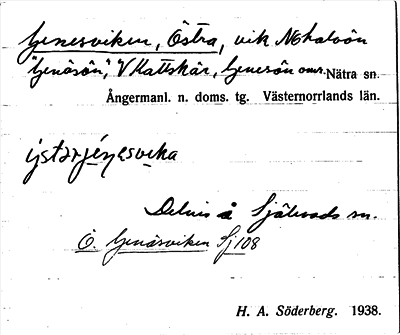 Genesviken, Östra, vik N halvön
"Genäsön", V Kattskär, Genesön omr. Nätra sn.
Ångermanl. n. doms. tg. Västernorrlands län.
Delvis å Själevads sn.
Ö. Genäsviken Sj 108
H. A. Söderberg. 1938.